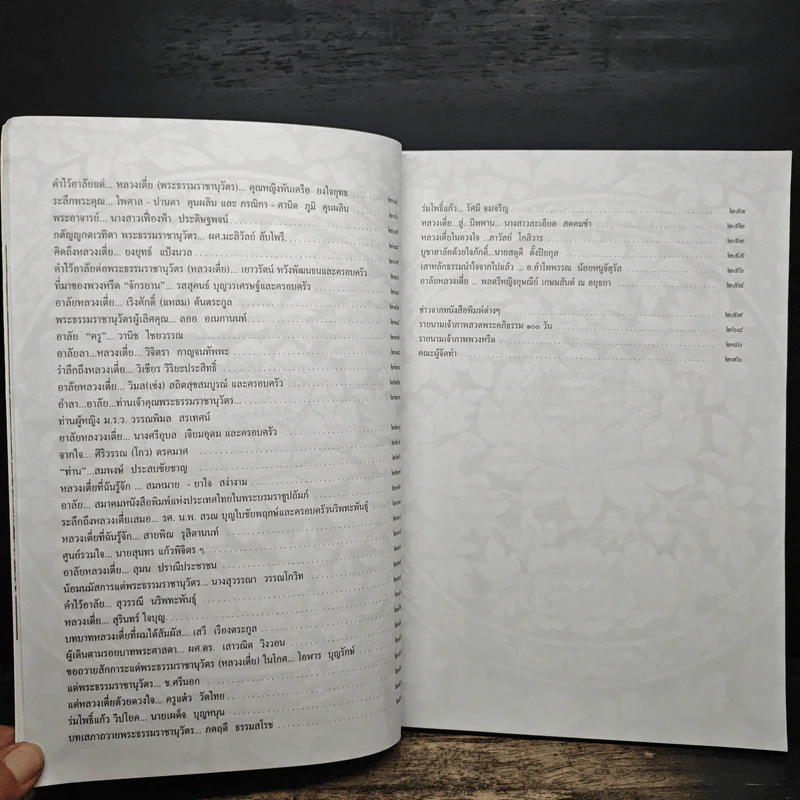 คำไว้อาลัยแด่... หลวงเตี่ย (พระธรรมราชานุวัตร)... คุณหญิงพันเครือ ยงใจยุทธ
ระลึกพระคุณ... ไพศาล - ปานดา คุนผลิน และ กรณิกา - ศานิต ภูมิ คุนผลิน
พระอาจารย์... นางสาวเฟื่องฟ้า ประดิษฐพจน์
กตัญญุกตเวทิตา พระธรรมราชานุวัตร... ผศ.มะลิวัลย์ ลับไพรี
คิดถึงหลวงเตี่ย... ยงยุทธ์ แป้งนวล
คำไว้อาลัยต่อพระธรรมราชานุวัตร (หลวงเตี่ย)... เยาวรัตน์ หวังพัฒนธนและครอบครัว
ที่มาของพวงหรีด “จักรยาน”... รสสุคนธ์ บุญวรเศรษฐ์และครอบครัว
อาลัยหลวงเตี่ย... เริงศักดิ์ (แหลม) ตันตระกูล
พระธรรมราชานุวัตรผู้เลิศคุณ... ลออ อเนกานนท์
อาลัย “ครู”... วานิช ไชยวรรณ
อาลัยลา...หลวงเตี่ย... วิจิตรา กาญจนทัพพะ
รำลึกถึงหลวงเตี่ย... วิเชียร วิริยะประสิทธิ์
อาลัยหลวงเตี่ย... วิมล(เซ่ง) สถิตสุขสมบูรณ์ และครอบครัว
อำลา...อาลัย...ท่านเจ้าคุณพระธรรมราชานุวัตร...
ท่านผู้หญิง ม.ร.ว. วรรณพิมล สรเทศน์
อาลัยหลวงเตี่ย... นางศรีอุบล เจียมอุดม และครอบครัว
จากใจ... ศิริวรรณ (โกว) ดรคมาศ
“ท่าน”...สมพงษ์ ประสบชัยชาญ
หลวงเตี่ยที่ฉันรู้จัก ... สมหมาย - ยาใจ สง่างาม
อาลัย... สมาคมหนังสือพิมพ์แห่งประเทศไทยในพระบรมราชูปถัมภ์
ระลึกถึงหลวงเตี่ยเสมอ... รศ. น.พ. สรณ บุญใบชัยพฤกษ์และครอบครัวนริพทะพันธุ์
หลวงเตี่ยที่ฉันรู้จัก... สายพิณ รุสิตานนท์
ศูนย์รวมใจ... นายสุนทร แก้วพิจิตร ๆ
อาลัยหลวงเตี่ย... สุมน ปราณีประชาชน
น้อมนมัสการแด่พระธรรมราชานุวัตร... นางสุวรรณา วรรณโกวิท
คำไว้อาลัย... สุวรรณี นริพทะพันธุ์
หลวงเตี่ย... สุรินทร์ ใจบุญ
บทบาทหลวงเตี่ยที่ผมได้สัมผัส... เสวี เรืองตระกูล
ผู้เดินตามรอยบาทพระศาสดา... ผศ.ดร. เสาวณิต วิงวอน
ขอถวายสักการะแด่พระธรรมราชานุวัตร (หลวงเตี่ย) ในโกศ... โอฬาร บุญรักษ์
แด่พระธรรมราชานุวัตร... ช.ศรีนอก
แด่หลวงเตี่ยด้วยดวงใจ... ครูแต๋ว วัดไทย
ร่มโพธิ์แก้ว วิปโยค... นายเผด็จ บุญหนุน
บทเสภาถวายพระธรรมราชานุวัตร... ภคฤดี ธรรมสโรช
ร่มโพธิ์แก้ว... รัศมี จงเจริญ ๒๕๑
หลวงเตี่ย...สู่...นิพพาน... นางสาวละเอียด สดคมขำ ๒๕๒
หลวงเตี่ยในดวงใจ ...ลาวัลย์ โกลิวาร ๒๕๓
บูชาอาลัยด้วยใจภักดิ์...นายสดุดี ตั้งปิยกุล ๒๕๕
เสาหลักธรรมนำใจจากไปแล้ว ... อ.อำไพพรรณ น้อยหนูจัตุรัส ๒๕๖
อาลัยหลวงเตี่ย ... พลตรีหญิงอุษณีย์ เกษมสันต์ ณ อยุธยา ๒๕๘
ข่าวจากหนังสือพิมพ์ต่างๆ ๒๕๙
รายนามเจ้าภาพสวดพระอภิธรรม ๑๐๐ วัน ๒๖๘
รายนามเจ้าภาพพวงหรีด ๒๘๐
คณะผู้จัดทำ ๒๙๐